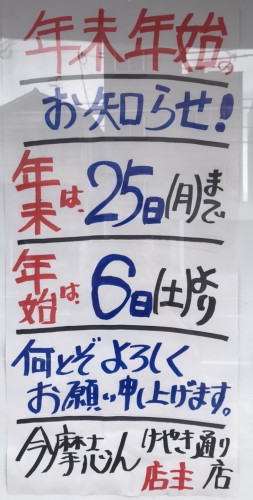 年末年始の
お知らせ!
年末は、25日(月)まで
年始は、6日(土)より
何とぞよろしく
お願い申し上げます。
今摩志ん けやき通り店
店主